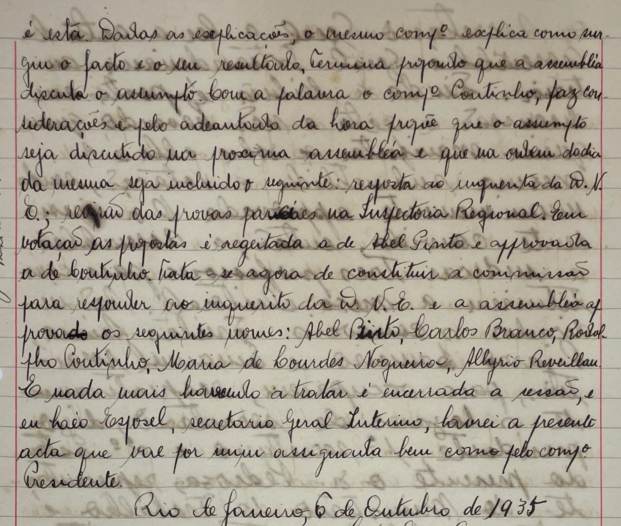 é esta. Dadas as explicações, o mesmo compº explica como sur-
giu o facto e o seu resultado, termina propondo que a assembléa
discuta o assumpto. Com a palavra o compº Coutinho, faz con-
siderações e pelo adeantado da hora propõe que o assumpto
seja discutido na proxima assembléa e que na ordem do dia
da mesma seja incluido o seguinte: resposta ao inquerito da D. N.
E.; revisão das provas parciaes na Inspectoria Regional. Em
votação as propostas é regeitada a de Abel Pinto e approvada
a de Coutinho. Trata-se agora de constituir a commissão
para responder ao inquerito da D. N. E. e a assembléa ap
prova os seguintes nomes: Abel Pinto, Carlos Branco, Rodol-
pho Coutinho, Maria de Lourdes Nogueira, Allyrio Reveilleau.
E nada mais havendo à tratar é encerrada a sessão, e
eu Esposel, secretario Geral Interino, lavrei a presente
acta que vae por mim assignada bem como pelo compº
Presidente.
Rio de Janeiro, 6 de Outubro de 1935